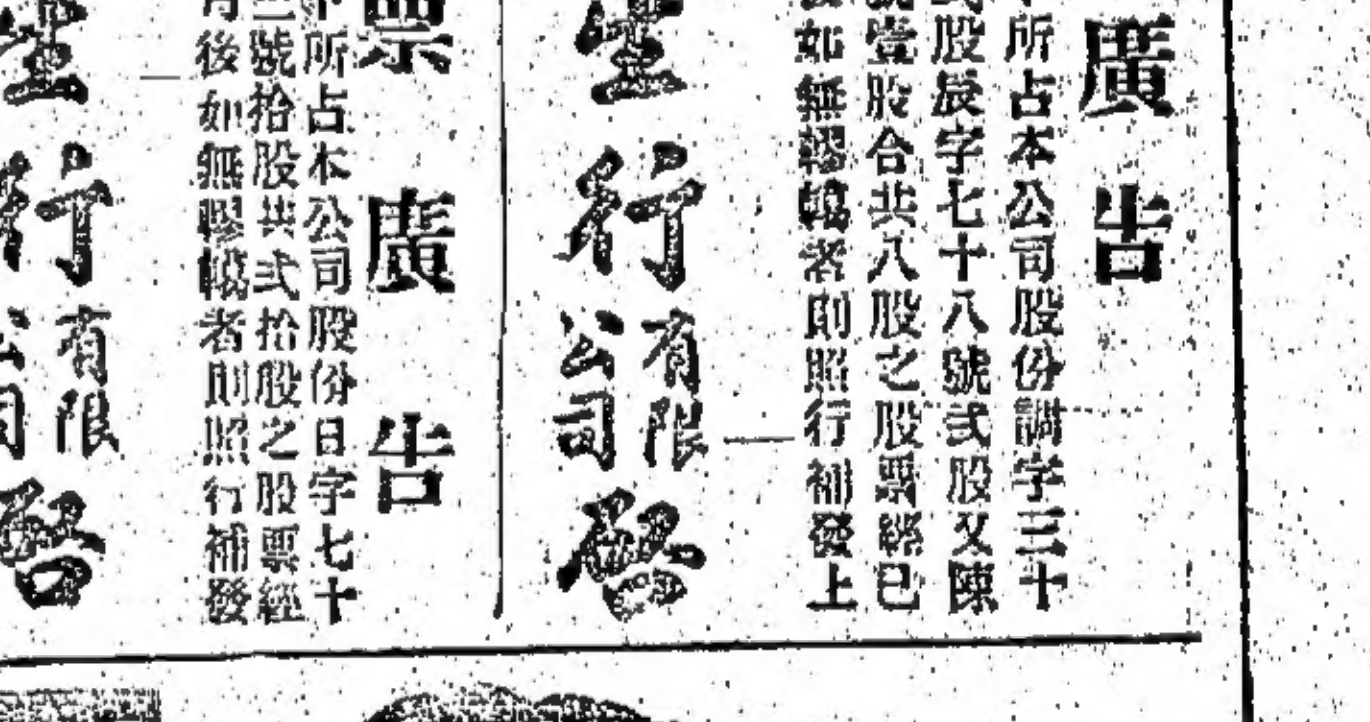 廣告
所占本公司股份調字三十
股辰字七十八號弍股又陳
壹股合共八股之股票經已
如無轇轕者則照行補發上
行有限公司啓
票廣告
所占本公司股份日字七十
號拾股共弍拾股之股票經
後如無轇轕者則照行補發
行有限公司啓